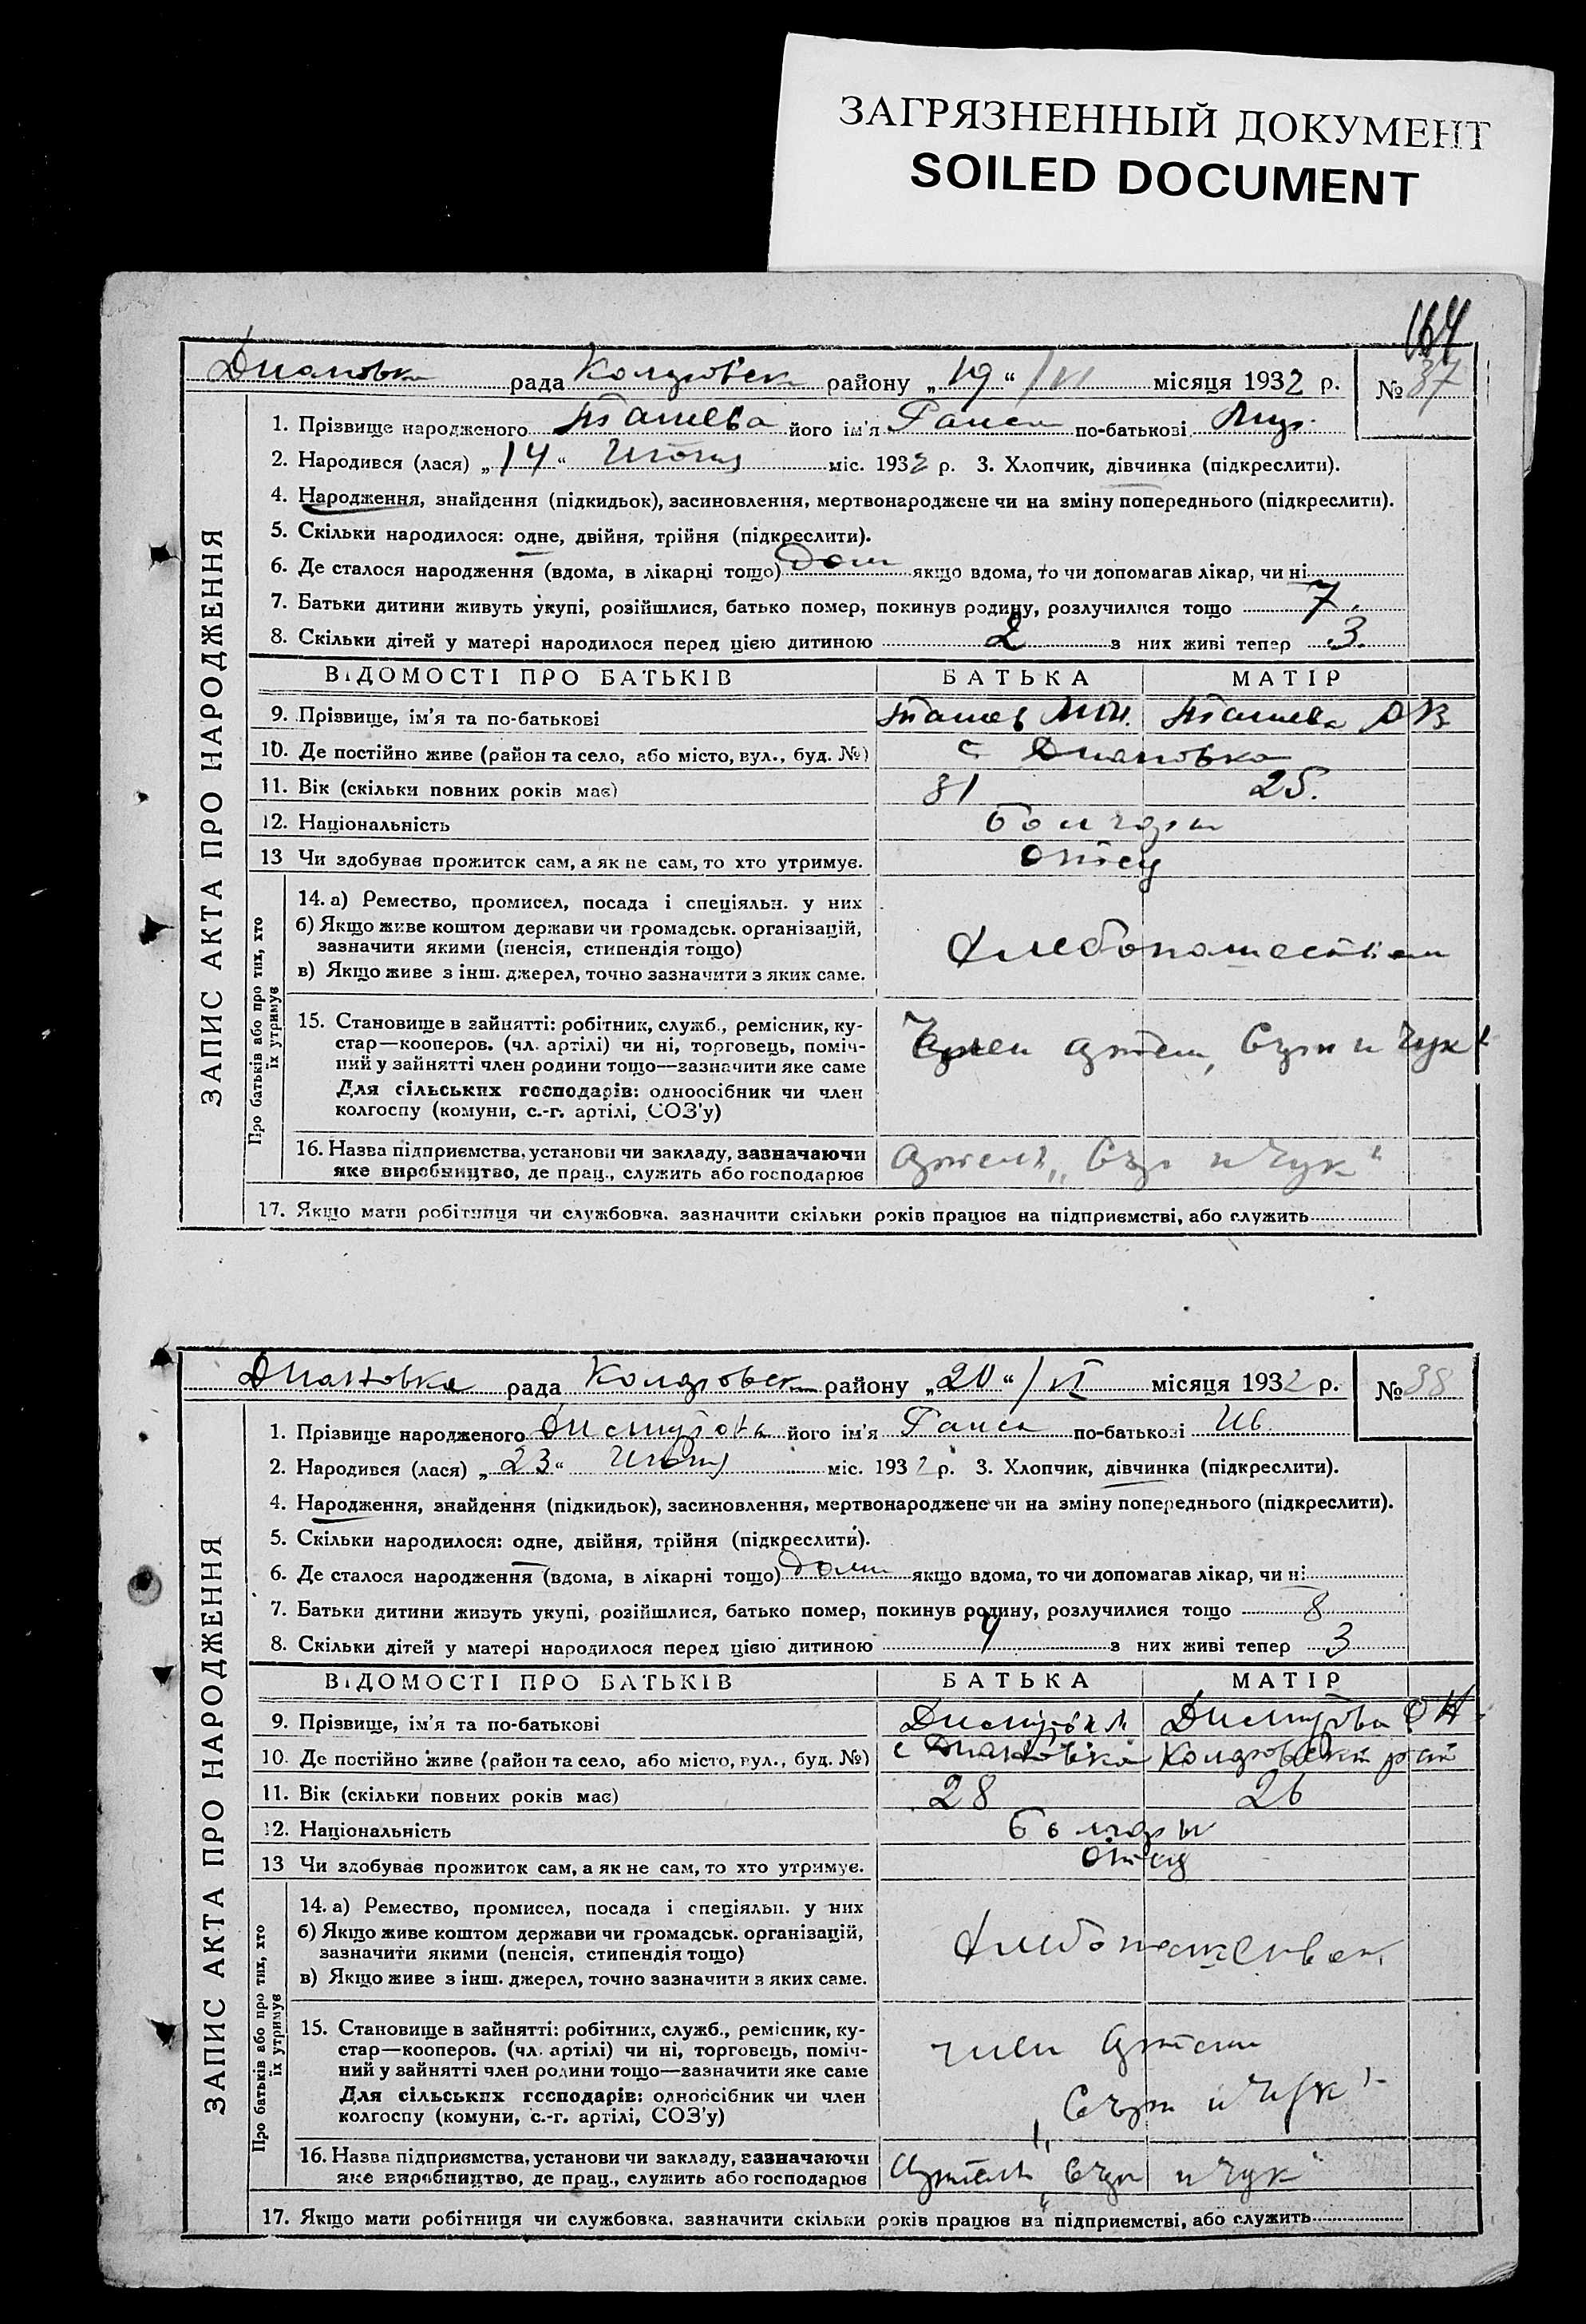 ЗАГРЯЗНЕННЫЙ ДОКУМЕНТ
SOILED DOCUMENT
164
Диановка рада району „19“ / VI місяця 1932 р. № 37
ЗАПИС АКТА ПРО НАРОДЖЕННЯ
1. Прізвище народженого Ташева його ім'я Раиса по-батькові
2. Народився (лася) „14“ міс. 1932 р. 3. Хлопчик, дівчинка (підкреслити).
4. Народження, знайдення (підкидьок), засиновлення, мертвонароджене чи на зміну попереднього (підкреслити).
5. Скільки народилося: одне, двійня, трійня (підкреслити).
6. Де сталося народження (вдома, в лікарні тощо) дом якщо вдома, то чи допомагав лікар, чи ні
7. Батьки дитини живуть укупі, розійшлися, батько помер, покинув родину, розлучилися тощо 7
8. Скільки дітей у матері народилося перед цією дитиною 2 з них живі тепер 3
ВІДОМОСТІ ПРО БАТЬКІВ БАТЬКА МАТІР
9. Прізвище, ім'я та по-батькові Ташев Ташева
10. Де постійно живе (район та село, або місто, вул., буд. №) с Диановка
11. Вік (скільки повних років має) 31 25.
12. Національність болгары
13 Чи здобував прожиток сам, а як не сам, то хто утримує. отец
Про батьків або про тих, хто їх утримує
14. а) Ремество, промисел, посада і спеціяльн. у них
б) Якщо живе коштом держави чи громадськ. організацій,
зазначити якими (пенсія, стипендія тощо)
в) Якщо живе з інш. джерел, точно зазначити з яких саме.
15. Становище в зайнятті: робітник, служб., ремісник, ку-
стар—кооперов. (чл. артілі) чи ні, торговець, поміч-
ний у зайнятті член родини тощо—зазначити яке саме
Для сільських господарів: одноосібник чи член
колгоспу (комуни, с.-г. артілі, СОЗ'у)
член артели, Сърп и Чук“
16. Назва підприємства, установи чи закладу, зазначаючи
яке виробництво, де прац., служить або господарює
артель „Сърп и Чук“
17. Якщо мати робітниця чи службовка, зазначити скільки років працює на підприємстві, або служить
Диановка рада району „20“ / VI місяця 1932 р. № 38
ЗАПИС АКТА ПРО НАРОДЖЕННЯ
1. Прізвище народженого його ім'я Раиса по-батькові Ив.
2. Народився (лася) „23“ міс. 1932 р. 3. Хлопчик, дівчинка (підкреслити).
4. Народження, знайдення (підкидьок), засиновлення, мертвонароджене чи на зміну попереднього (підкреслити).
5. Скільки народилося: одне, двійня, трійня (підкреслити).
6. Де сталося народження (вдома, в лікарні тощо) дома якщо вдома, то чи допомагав лікар, чи ні
7. Батьки дитини живуть укупі, розійшлися, батько помер, покинув родину, розлучилися тощо 8
8. Скільки дітей у матері народилося перед цією дитиною 4 з них живі тепер 3
ВІДОМОСТІ ПРО БАТЬКІВ БАТЬКА МАТІР
9. Прізвище, ім'я та по-батькові
10. Де постійно живе (район та село, або місто, вул., буд. №) с Диановка
11. Вік (скільки повних років має) 28 26
12. Національність болгары
13 Чи здобував прожиток сам, а як не сам, то хто утримує. отец
Про батьків або про тих, хто їх утримує
14. а) Ремество, промисел, посада і спеціяльн. у них
б) Якщо живе коштом держави чи громадськ. організацій,
зазначити якими (пенсія, стипендія тощо)
в) Якщо живе з інш. джерел, точно зазначити з яких саме.
15. Становище в зайнятті: робітник, служб., ремісник, ку-
стар—кооперов. (чл. артілі) чи ні, торговець, поміч-
ний у зайнятті член родини тощо—зазначити яке саме
Для сільських господарів: одноосібник чи член
колгоспу (комуни, с.-г. артілі, СОЗ'у)
член артели
„Сърп и Чук“
16. Назва підприємства, установи чи закладу, зазначаючи
яке виробництво, де прац., служить або господарює
артель „Сърп и Чук“
17. Якщо мати робітниця чи службовка, зазначити скільки років працює на підприємстві, або служить